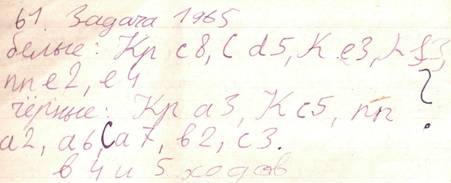 61. Задача 1965
белые: Кр c8, С d5, К e3,
пп e2, e4
чёрные: Кр a3, К c5, пп ?
a2, a6, С a7, в2, c3.
в 4 и 5 ходов